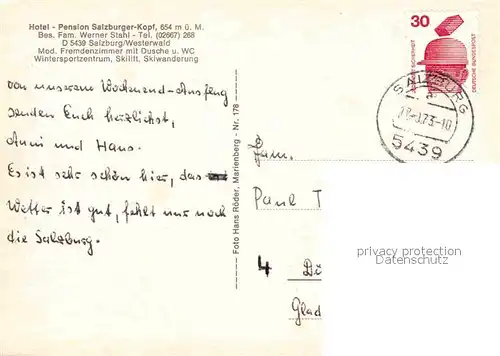 Hotel - Pension Salzburger-Kopf, 654 m ü. M.
Bes. Fam. Werner Stahl - Tel. (02667) 268
D 5439 Salzburg/Westerwald
Mod. Fremdenzimmer mit Dusche u. WC
Wintersportzentrum, Skilift, Skiwanderung
von unserem Wochenend-Ausflug
senden Euch herzlichst,
Anni und Hans.
Es ist sehr schön hier, das
Wetter ist gut, fehlt nur noch
die Salzburg.
Foto Hans Röder, Marienberg - Nr. 178
30
DEUTSCHE BUNDESPOST
SALZBURG
5439
Fam.
Paul T
4 Dü
Glad
privacy protection